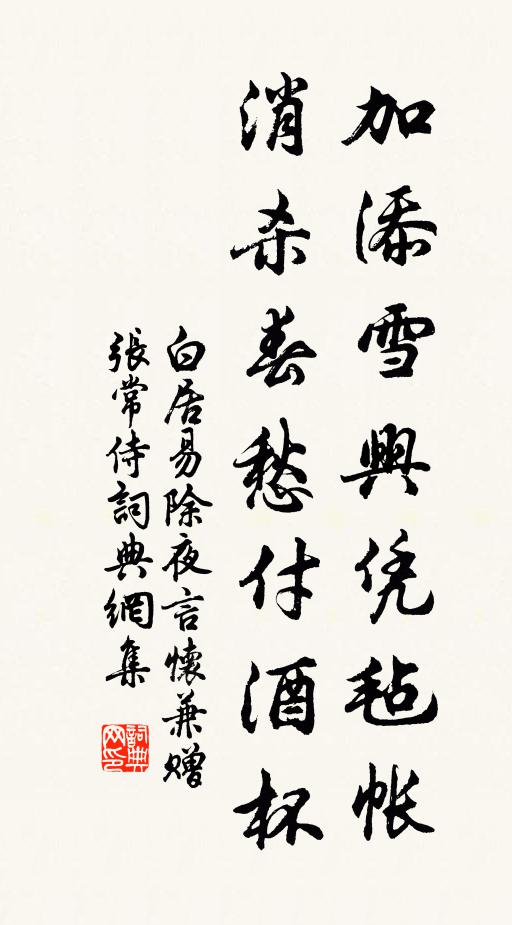 加添雪興凭毡帐
消杀春愁付酒杯
白居易除夜言懷兼赠
張常侍詞典網集
詞典
网印